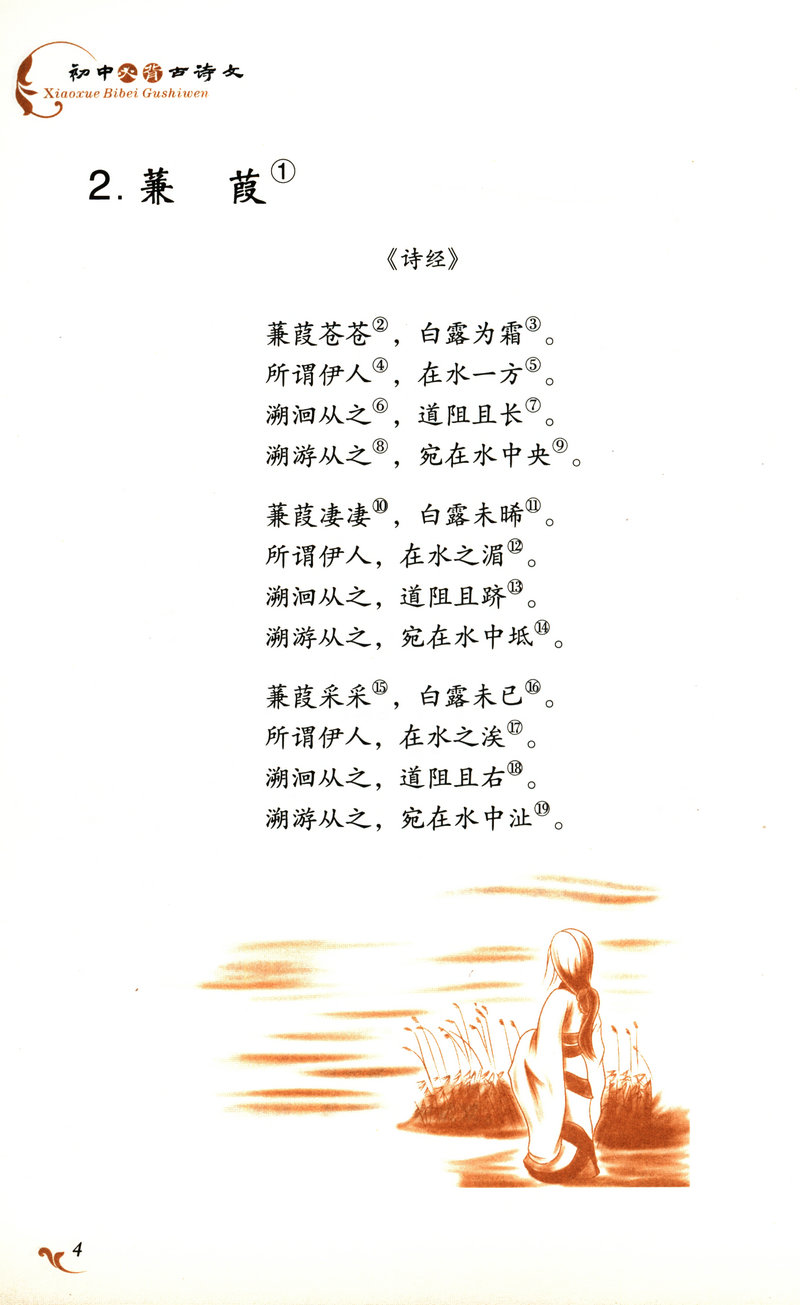 初中必背古诗文
Xiaoxue Bibei Gushiwen
2. 蒹 葭①
《诗经》
蒹葭苍苍②，白露为霜③。
所谓伊人④，在水一方⑤。
溯洄从之⑥，道阻且长⑦。
溯游从之⑧，宛在水中央⑨。
蒹葭凄凄⑩，白露未晞⑪。
所谓伊人，在水之湄⑫。
溯洄从之，道阻且跻⑬。
溯游从之，宛在水中坻⑭。
蒹葭采采⑮，白露未已⑯。
所谓伊人，在水之涘⑰。
溯洄从之，道阻且右⑱。
溯游从之，宛在水中沚⑲。
4